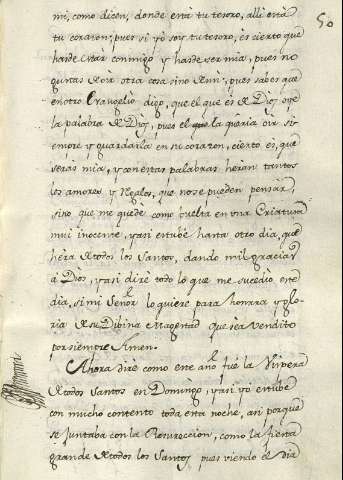 50
mi, como dicen, donde està tu tesoro, alli està
tu corazon; pues si yo soy tu tesoro, es cierto que
hasde estàr conmigo y hasde ser mia, pues no
gustas de oir otra cosa sino de mi, pues sabes que
en otro Evangelio digo, que el que es de Dios oye
la palabra de Dios, pues el que la queria oir si-
empre y guardarla en su corazon, cierto es, que
seràs mia, y con estas palabras heran tantos
los amores y Regalos, que no se pueden pensar,
sino que me quede como buelta en una Criatura
mui inocente, y asi estube hasta otro dia, que
hera de todos los Santos, dando mil gracias
à Dios, y asi dirè todo lo que me sucediò este
dia, si mi Señor lo quiere para honrra y glo-
ria de su Dibina Magestad que sea vendito
por siempre Amen.
Ahora dirè como este año fuè la Vispera
de todos Santos en Domingo, y asi yo estube
con mucho contento toda esta noche, asi porque
se juntaba con la Resureccion, como la fiesta
grande de todos los Santos, pues viendo el Dia